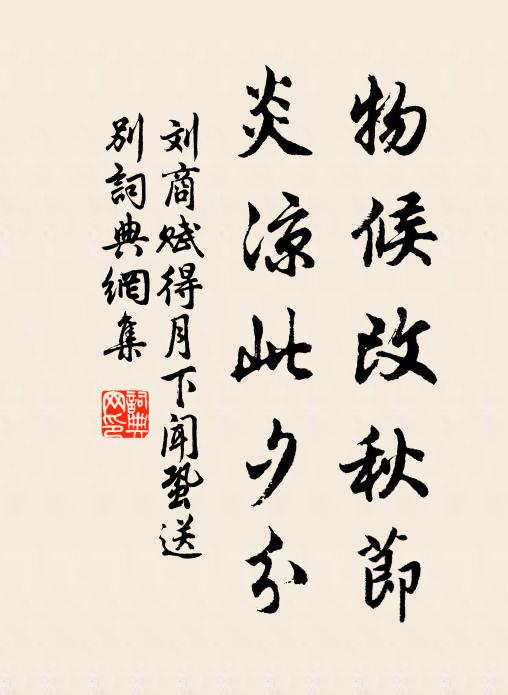 物候改秋節
炎凉此夕分
刘商赋得月下闻蛩送
别詞典網集
詞典
网印